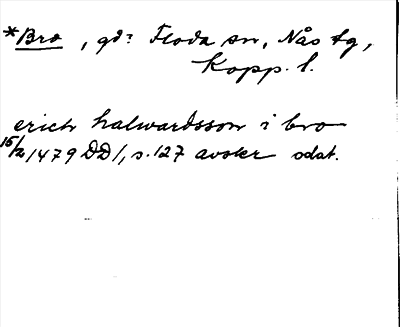 *Bro, gd? Floda sn, Nås tg,
Kopp. l.
erich halwardsson i bro
15/2 1479 DD 1, s. 127 avskr odat.